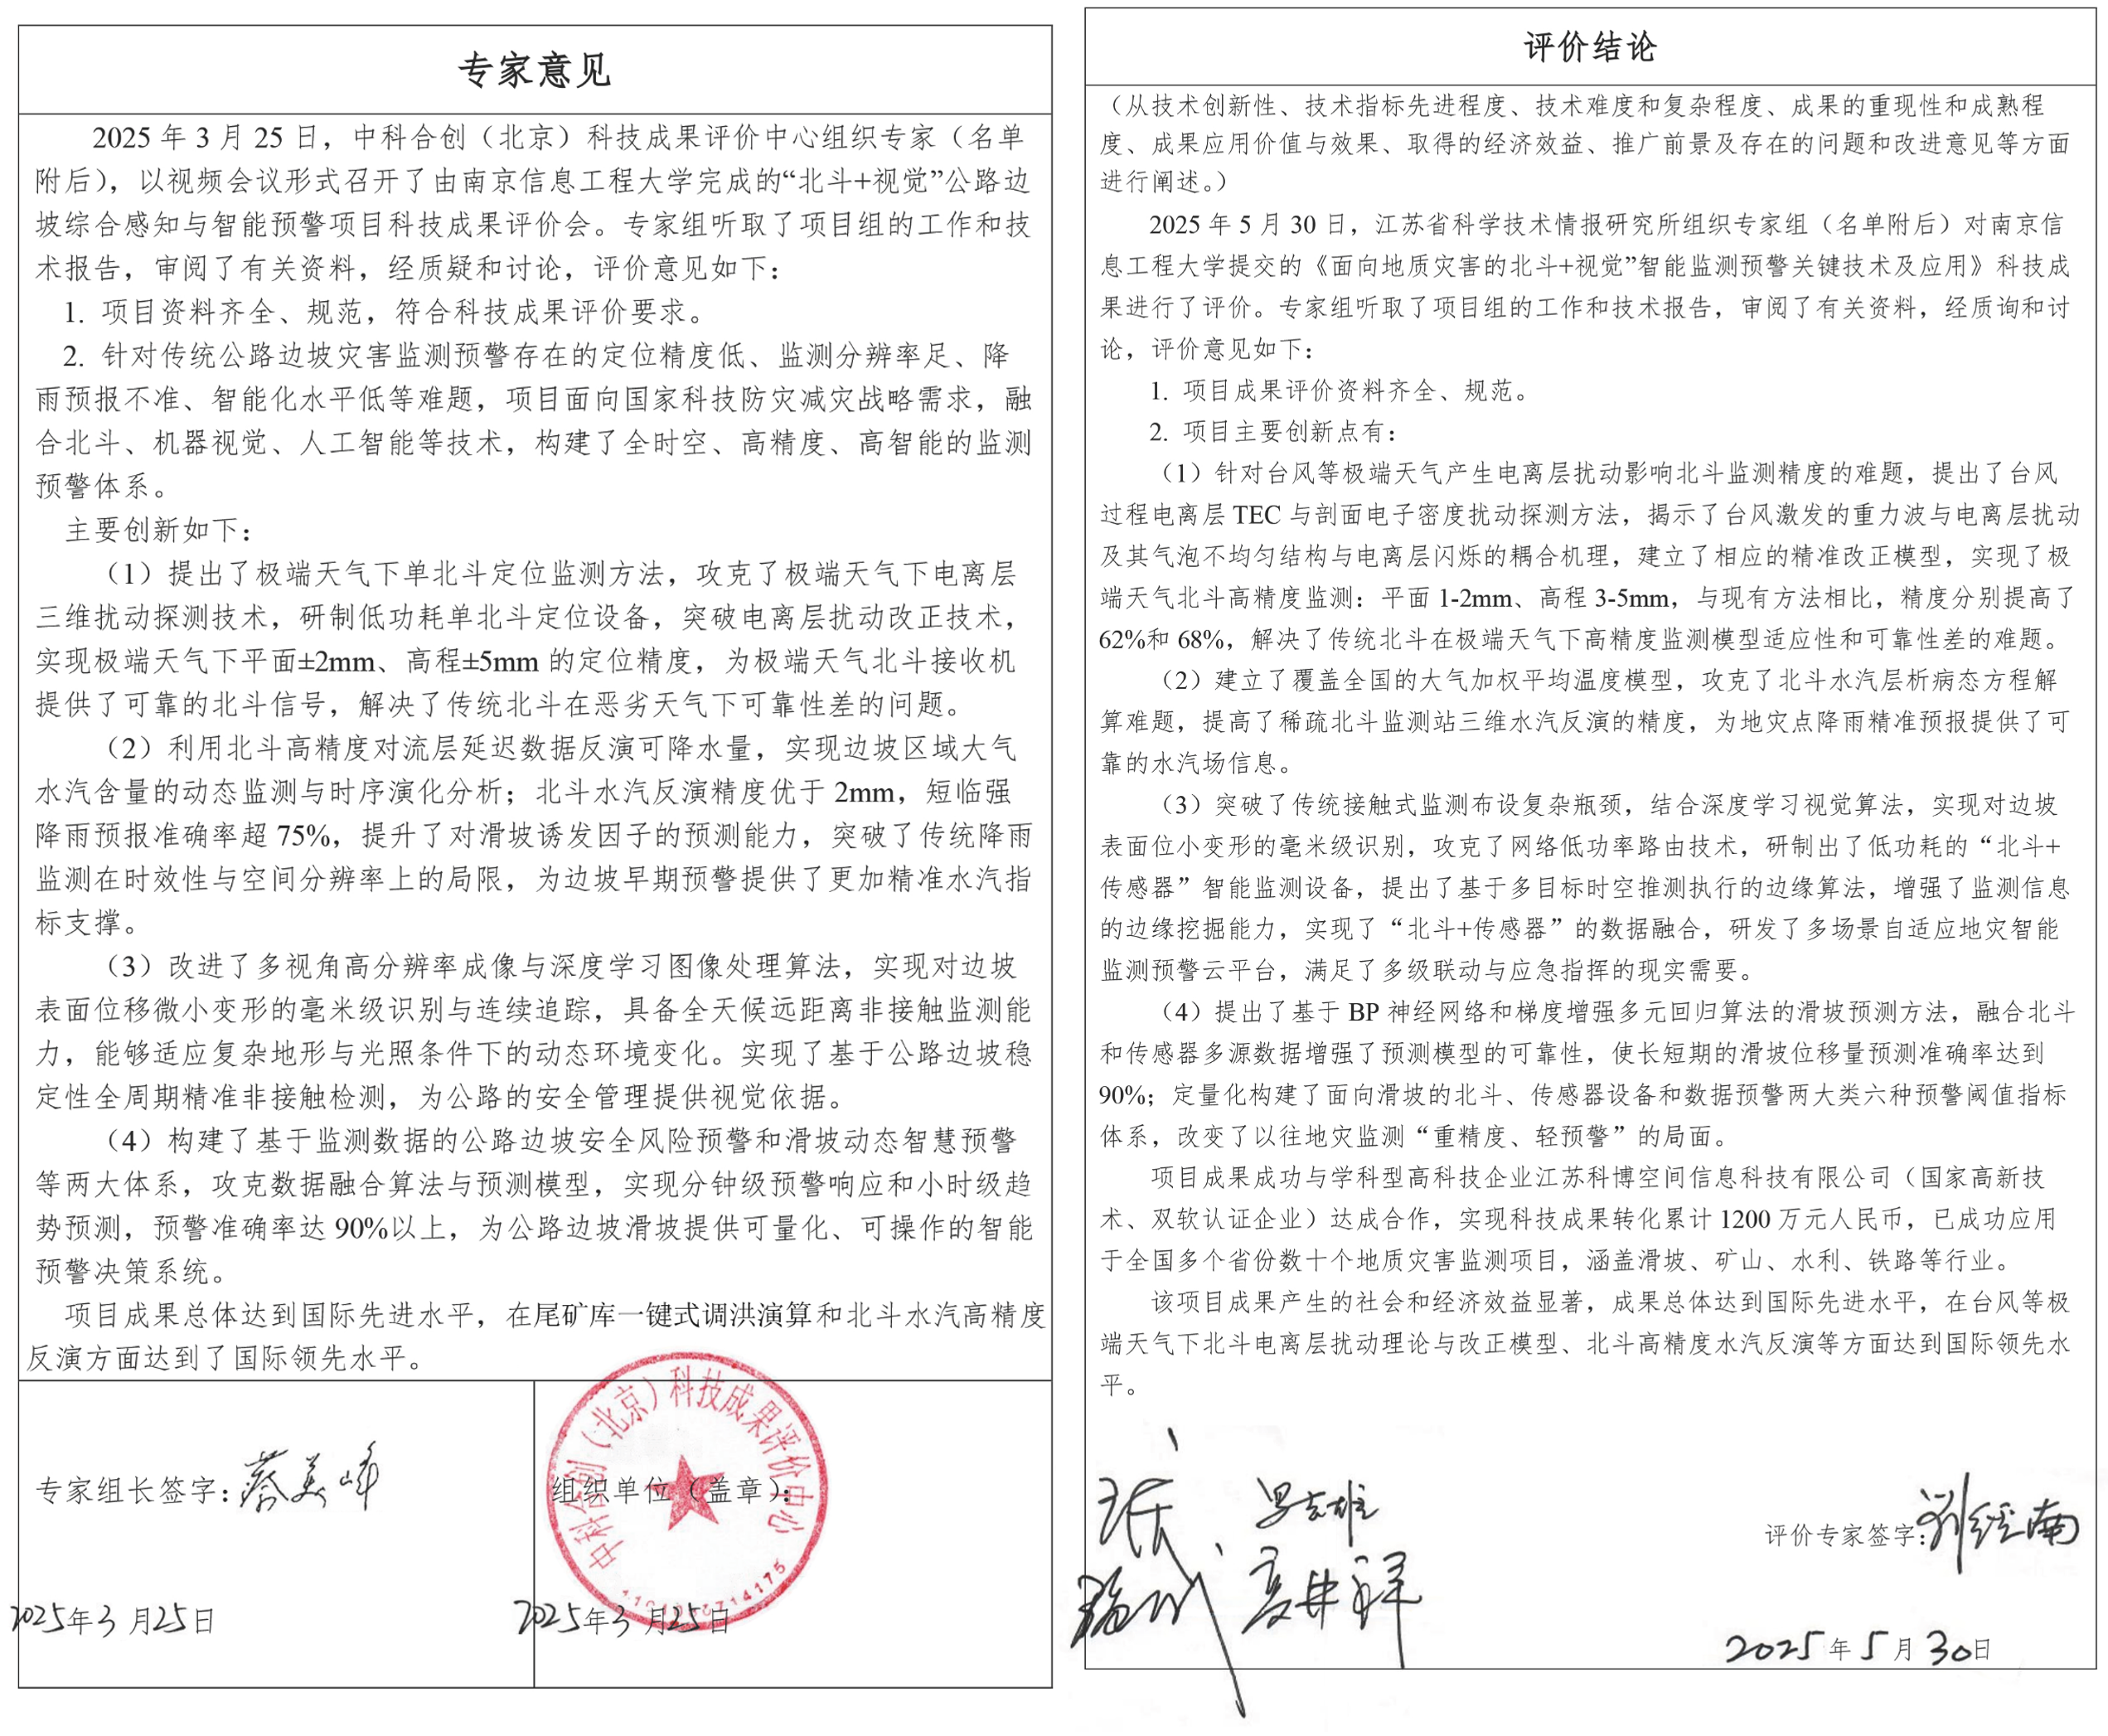 专家意见
2025 年 3 月 25 日，中科合创（北京）科技成果评价中心组织专家（名单
附后），以视频会议形式召开了由南京信息工程大学完成的“北斗+视觉”公路边
坡综合感知与智能预警项目科技成果评价会。专家组听取了项目组的工作和技
术报告，审阅了有关资料，经质疑和讨论，评价意见如下：
1. 项目资料齐全、规范，符合科技成果评价要求。
2. 针对传统公路边坡灾害监测预警存在的定位精度低、监测分辨率足、降
雨预报不准、智能化水平低等难题，项目面向国家科技防灾减灾战略需求，融
合北斗、机器视觉、人工智能等技术，构建了全时空、高精度、高智能的监测
预警体系。
主要创新如下：
（1）提出了极端天气下单北斗定位监测方法，攻克了极端天气下电离层
三维扰动探测技术，研制低功耗单北斗定位设备，突破电离层扰动改正技术，
实现极端天气下平面±2mm、高程±5mm 的定位精度，为极端天气北斗接收机
提供了可靠的北斗信号，解决了传统北斗在恶劣天气下可靠性差的问题。
（2）利用北斗高精度对流层延迟数据反演可降水量，实现边坡区域大气
水汽含量的动态监测与时序演化分析；北斗水汽反演精度优于 2mm，短临强
降雨预报准确率超 75%，提升了对滑坡诱发因子的预测能力，突破了传统降雨
监测在时效性与空间分辨率上的局限，为边坡早期预警提供了更加精准水汽指
标支撑。
（3）改进了多视角高分辨率成像与深度学习图像处理算法，实现对边坡
表面位移微小变形的毫米级识别与连续追踪，具备全天候远距离非接触监测能
力，能够适应复杂地形与光照条件下的动态环境变化。实现了基于公路边坡稳
定性全周期精准非接触检测，为公路的安全管理提供视觉依据。
（4）构建了基于监测数据的公路边坡安全风险预警和滑坡动态智慧预警
等两大体系，攻克数据融合算法与预测模型，实现分钟级预警响应和小时级趋
势预测，预警准确率达 90%以上，为公路边坡滑坡提供可量化、可操作的智能
预警决策系统。
项目成果总体达到国际先进水平，在尾矿库一键式调洪演算和北斗水汽高精度
反演方面达到了国际领先水平。
专家组长签字：蔡美峰
2025年3月25日
组织单位（盖章）：
中科合创（北京）科技成果评价中心
2025年3月25日
评价结论
（从技术创新性、技术指标先进程度、技术难度和复杂程度、成果的重现性和成熟程
度、成果应用价值与效果、取得的经济效益、推广前景及存在的问题和改进意见等方面
进行阐述。）
2025 年 5 月 30 日，江苏省科学技术情报研究所组织专家组（名单附后）对南京信
息工程大学提交的《面向地质灾害的北斗+视觉”智能监测预警关键技术及应用》科技成
果进行了评价。专家组听取了项目组的工作和技术报告，审阅了有关资料，经质询和讨
论，评价意见如下：
1. 项目成果评价资料齐全、规范。
2. 项目主要创新点有：
（1）针对台风等极端天气产生电离层扰动影响北斗监测精度的难题，提出了台风
过程电离层 TEC 与剖面电子密度扰动探测方法，揭示了台风激发的重力波与电离层扰动
及其气泡不均匀结构与电离层闪烁的耦合机理，建立了相应的精准改正模型，实现了极
端天气北斗高精度监测：平面 1-2mm、高程 3-5mm，与现有方法相比，精度分别提高了
62%和 68%，解决了传统北斗在极端天气下高精度监测模型适应性和可靠性差的难题。
（2）建立了覆盖全国的大气加权平均温度模型，攻克了北斗水汽层析病态方程解
算难题，提高了稀疏北斗监测站三维水汽反演的精度，为地灾点降雨精准预报提供了可
靠的水汽场信息。
（3）突破了传统接触式监测布设复杂瓶颈，结合深度学习视觉算法，实现对边坡
表面位小变形的毫米级识别，攻克了网络低功率路由技术，研制出了低功耗的“北斗+
传感器”智能监测设备，提出了基于多目标时空推测执行的边缘算法，增强了监测信息
的边缘挖掘能力，实现了“北斗+传感器”的数据融合，研发了多场景自适应地灾智能
监测预警云平台，满足了多级联动与应急指挥的现实需要。
（4）提出了基于 BP 神经网络和梯度增强多元回归算法的滑坡预测方法，融合北斗
和传感器多源数据增强了预测模型的可靠性，使长短期的滑坡位移量预测准确率达到
90%；定量化构建了面向滑坡的北斗、传感器设备和数据预警两大类六种预警阈值指标
体系，改变了以往地灾监测“重精度、轻预警”的局面。
项目成果成功与学科型高科技企业江苏科博空间信息科技有限公司（国家高新技
术、双软认证企业）达成合作，实现科技成果转化累计 1200 万元人民币，已成功应用
于全国多个省份数十个地质灾害监测项目，涵盖滑坡、矿山、水利、铁路等行业。
该项目成果产生的社会和经济效益显著，成果总体达到国际先进水平，在台风等极
端天气下北斗电离层扰动理论与改正模型、北斗高精度水汽反演等方面达到国际领先水
平。
高井祥
评价专家签字：刘经南
2025年5月30日